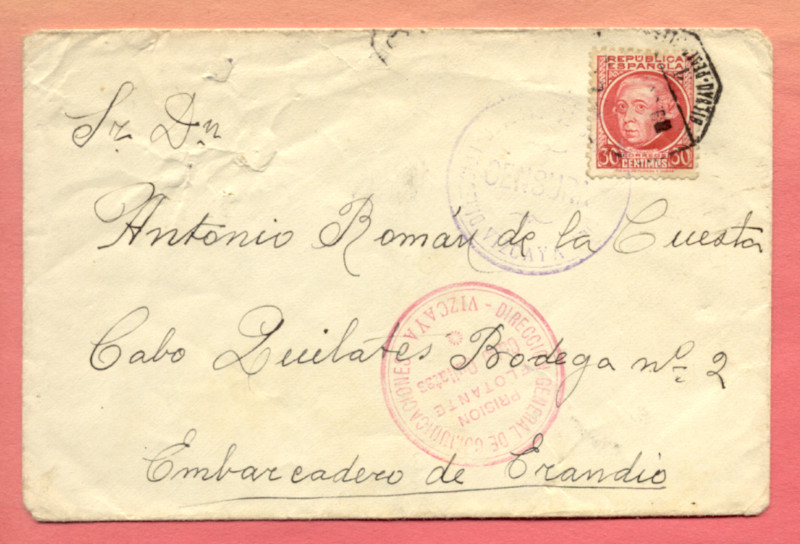 REPUBLICA
ESPAÑOLA
30 CENTIMOS 30
Sr. Dn
CENSURA
VIZCAYA
Antonio Román de la Cuesta
Cabo Quilates Bodega nº 2
DIRECCION GENERAL DE COMUNICACIONES - VIZCAYA -
PRISION
FLOTANTE
Cabo Quilates
Embarcadero de Erandio